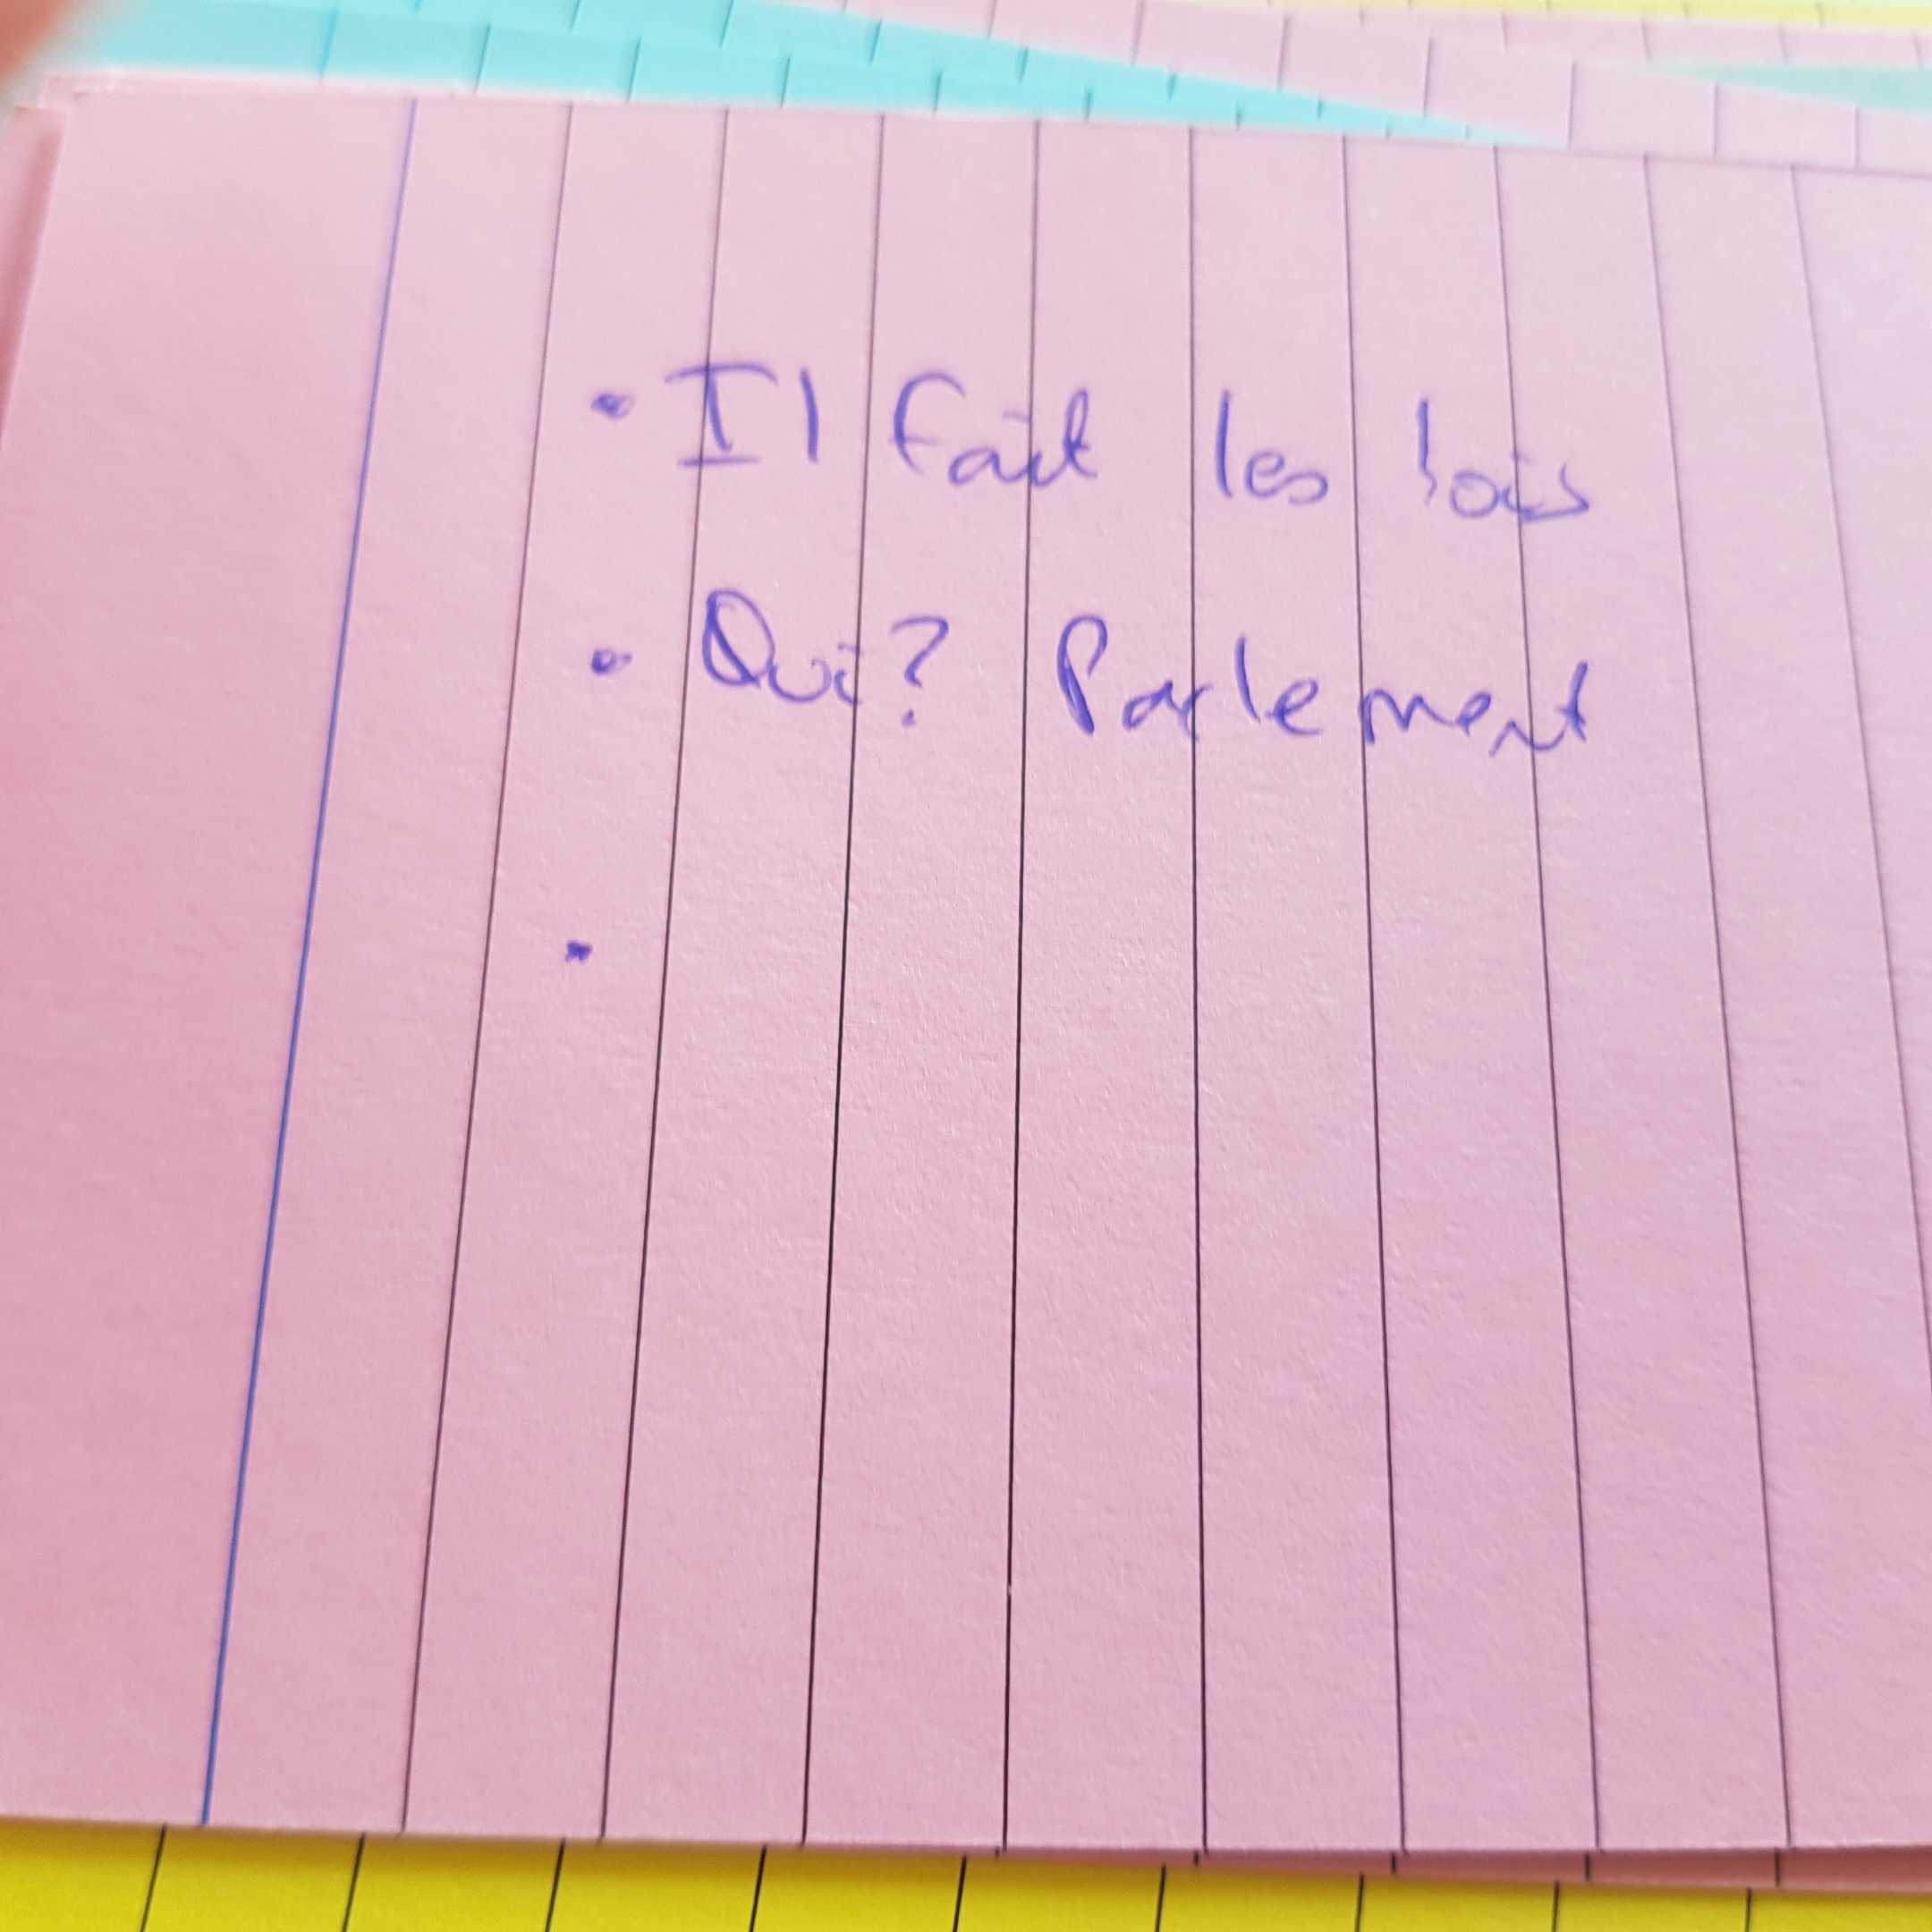 • Il fait les lois
• Qui? Parlement
•